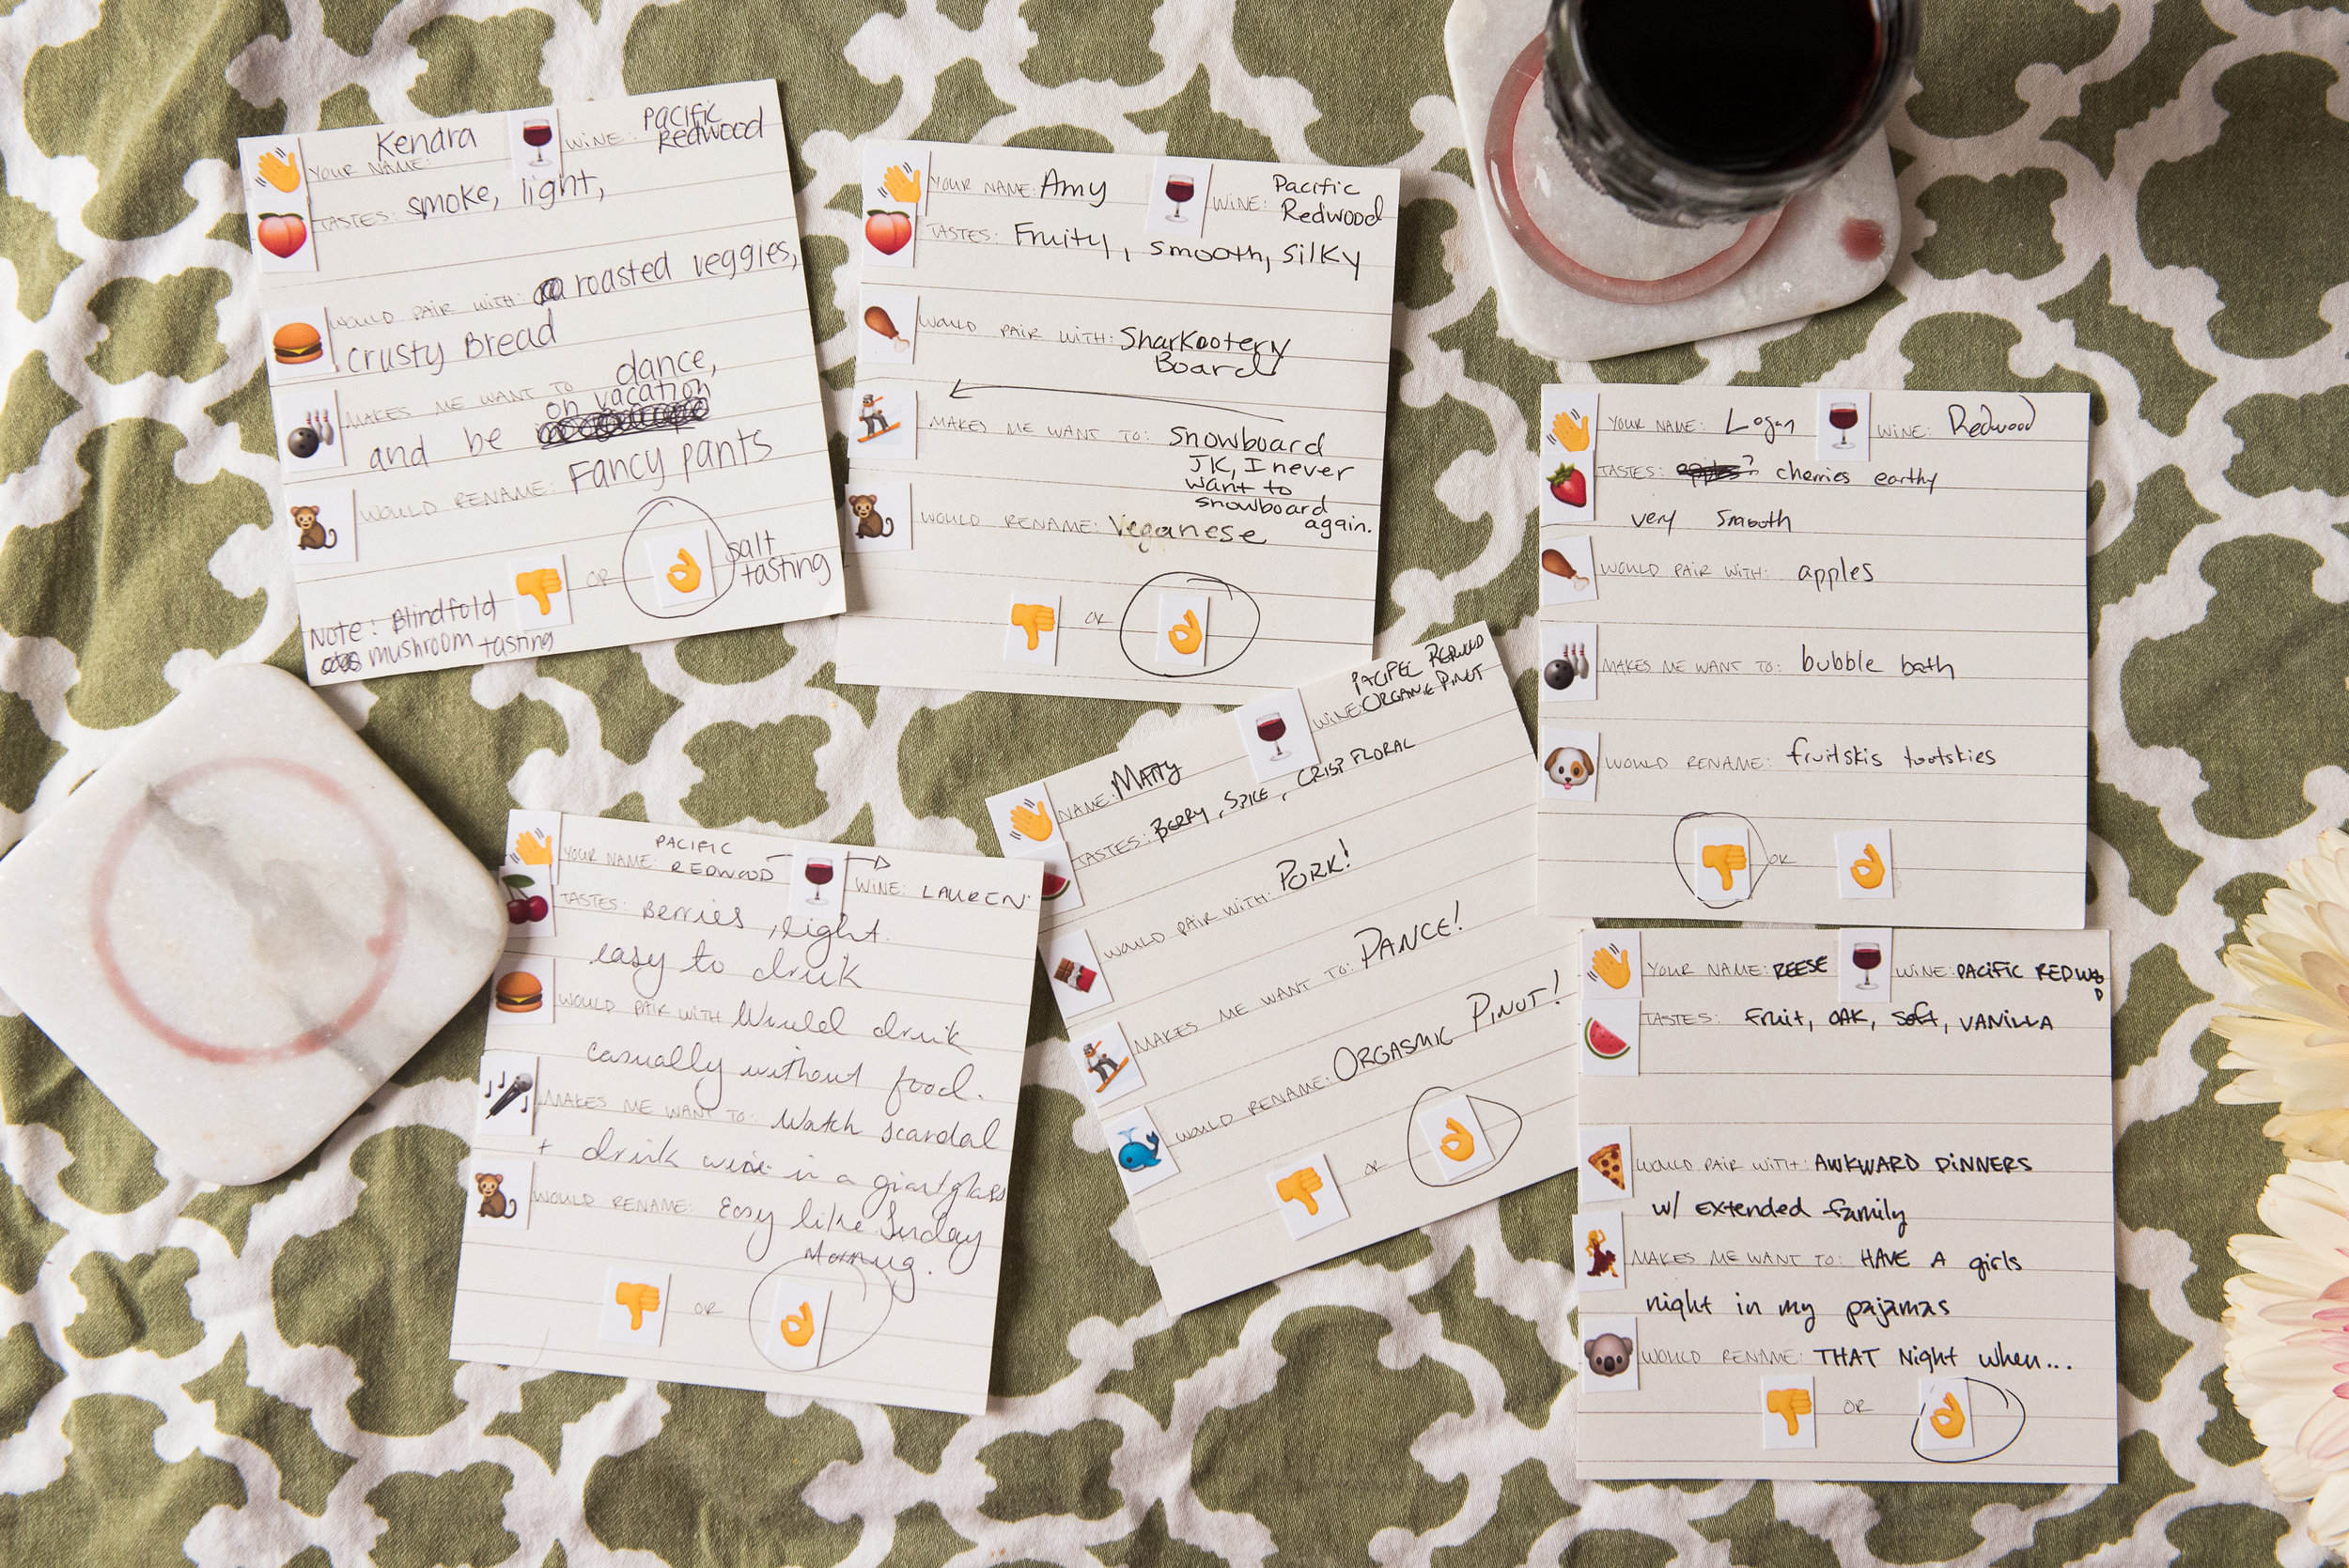 Kenara
YOUR NAME:
Pacific
WINE: Redwood
TASTES: smoke, light,
WOULD PAIR WITH: roasted veggies,
Crusty Bread
MAKES ME WANT TO dance,
on vacation
and be
WOULD RENAME: Fancy pants
OR
salt
tasting
Note: Blindfold
mushroom tasting
YOUR NAME: Amy
Pacific
WINE: Redwood
TASTES: Fruity, smooth, silky
WOULD PAIR WITH: Sharkootery
Board
MAKES ME WANT TO: Snowboard
JK, I never
want to
snowboard
again.
WOULD RENAME: Veganese
OR
YOUR NAME: Logan
WINE: Redwood
TASTES: apples? cherries earthy
very smooth
WOULD PAIR WITH: apples
MAKES ME WANT TO: bubble bath
WOULD RENAME: fruitskis tootskies
OR
PACIFIC
YOUR NAME: REDWOOD
WINE: LAUREN
TASTES: Berries, light.
easy to drink
WOULD PAIR WITH Would drink
casually without food.
MAKES ME WANT TO: Watch Scandal
+ drink wine in a giant glass
WOULD RENAME: Easy like Sunday
Morning.
OR
NAME: MATTY
PACIFEC REDWOOD
WINE: ORGANIC PINUT
TASTES: BERRY, SPICE, CRISP FLORAL
WOULD PAIR WITH: PORK!
MAKES ME WANT TO: DANCE!
WOULD RENAME: ORGASMIC PINUT!
OR
YOUR NAME: REESE
WINE: PACIFIC REDWOOD
TASTES: Fruit, OAK, Soft, VANILLA
WOULD PAIR WITH: AWKWARD DINNERS
w/ extended family
MAKES ME WANT TO: HAVE A girls
night in my pajamas
WOULD RENAME: THAT Night when...
OR